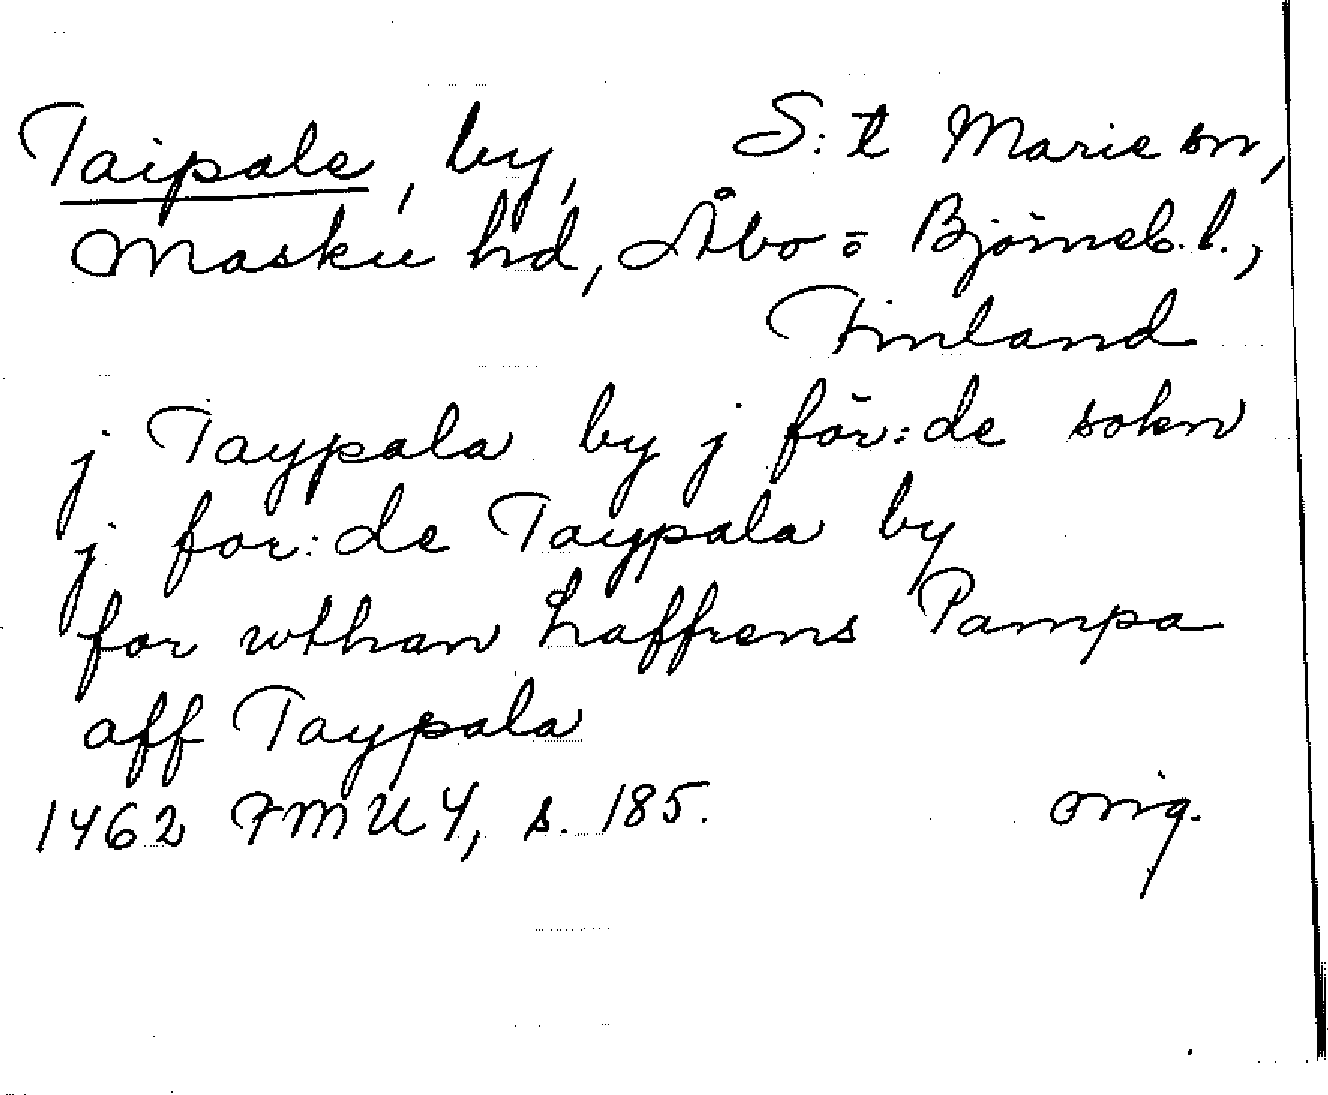 Taipale, by, S:t Marie sn,
Masku hd, Åbo o Björneb. l.,
Finland
j Taypala by j för:de sokn
j for:de Taypala by
for wthan haffrens Pampa
aff Taypala
1462 FMU 4, s. 185. orig.